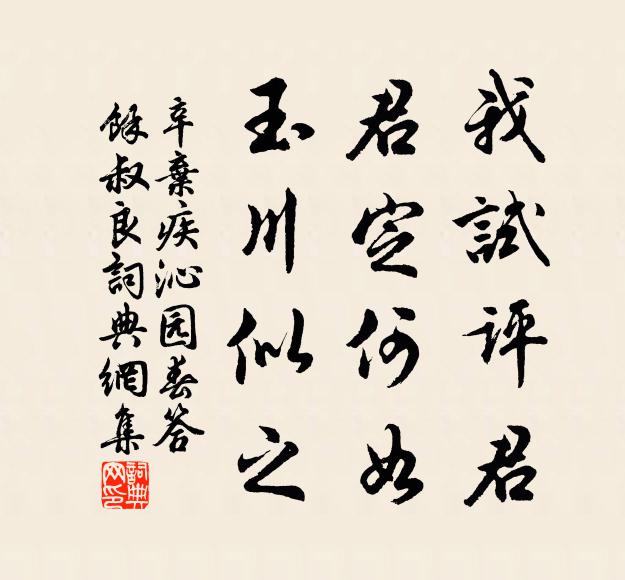 我試评君
君定何如
玉川似之
辛棄疾沁园春答
餘叔良詞典網集
詞典网印